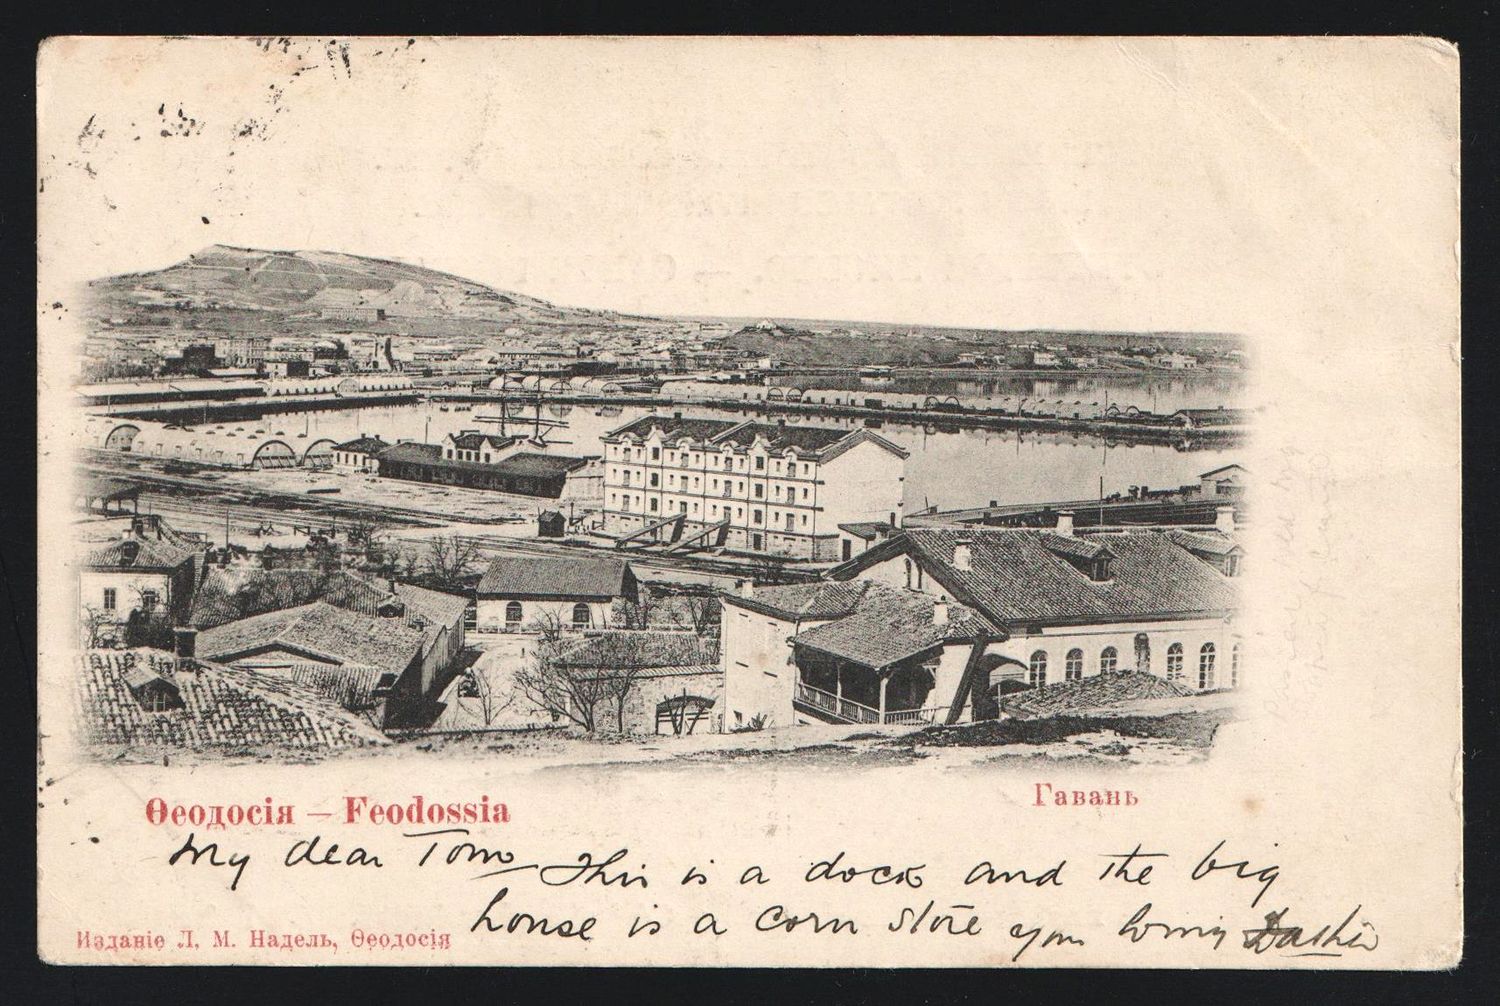 Ѳеодосія – Feodossia
Гавань
My dear Tom This is a dock and the big
house is a corn store your loving
Изданіе Л. М. Надель, Ѳеодосія